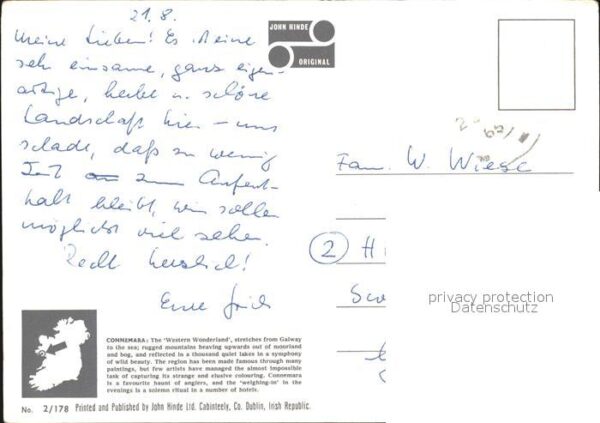 21. 8.
Meine Lieben! Es
sehr einsame, ganz eigen-
artige, herbe u. schöne
Landschaft hier –
schade, daß zu wenig
Zeit zum Aufent-
halt bleibt, wir sollen
möglichst viel sehen.
Recht herzlich!
Eure
JOHN HINDE
ORIGINAL
Fam. W. Wiese
2 H
privacy protection
Datenschutz
CONNEMARA: The 'Western Wonderland', stretches from Galway
to the sea; rugged mountains heaving upwards out of moorland
and bog, and reflected in a thousand quiet lakes in a symphony
of wild beauty. The region has been made famous through many
paintings, but few artists have managed the almost impossible
task of capturing its strange and elusive colouring. Connemara
is a favourite haunt of anglers, and the 'weighing-in' in the
evenings is a solemn ritual in a number of hotels.
No. 2/178 Printed and Published by John Hinde Ltd. Cabinteely, Co. Dublin, Irish Republic.